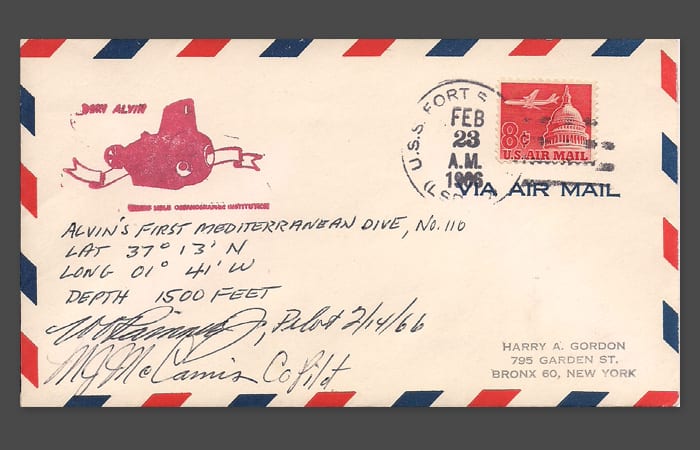 DSRV ALVIN
WOODS HOLE OCEANOGRAPHIC INSTITUTION
U.S.S. FORT
FEB
23
A.M.
1966
8¢
U.S. AIR MAIL
VIA AIR MAIL
ALVIN'S FIRST MEDITERRANEAN DIVE, NO. 110
LAT 37° 13' N
LONG 01° 41' W
DEPTH 1500 FEET
Jr, Pilot 2/14/66
M J McCamis CoPilot
HARRY A. GORDON
795 GARDEN ST.
BRONX 60, NEW YORK